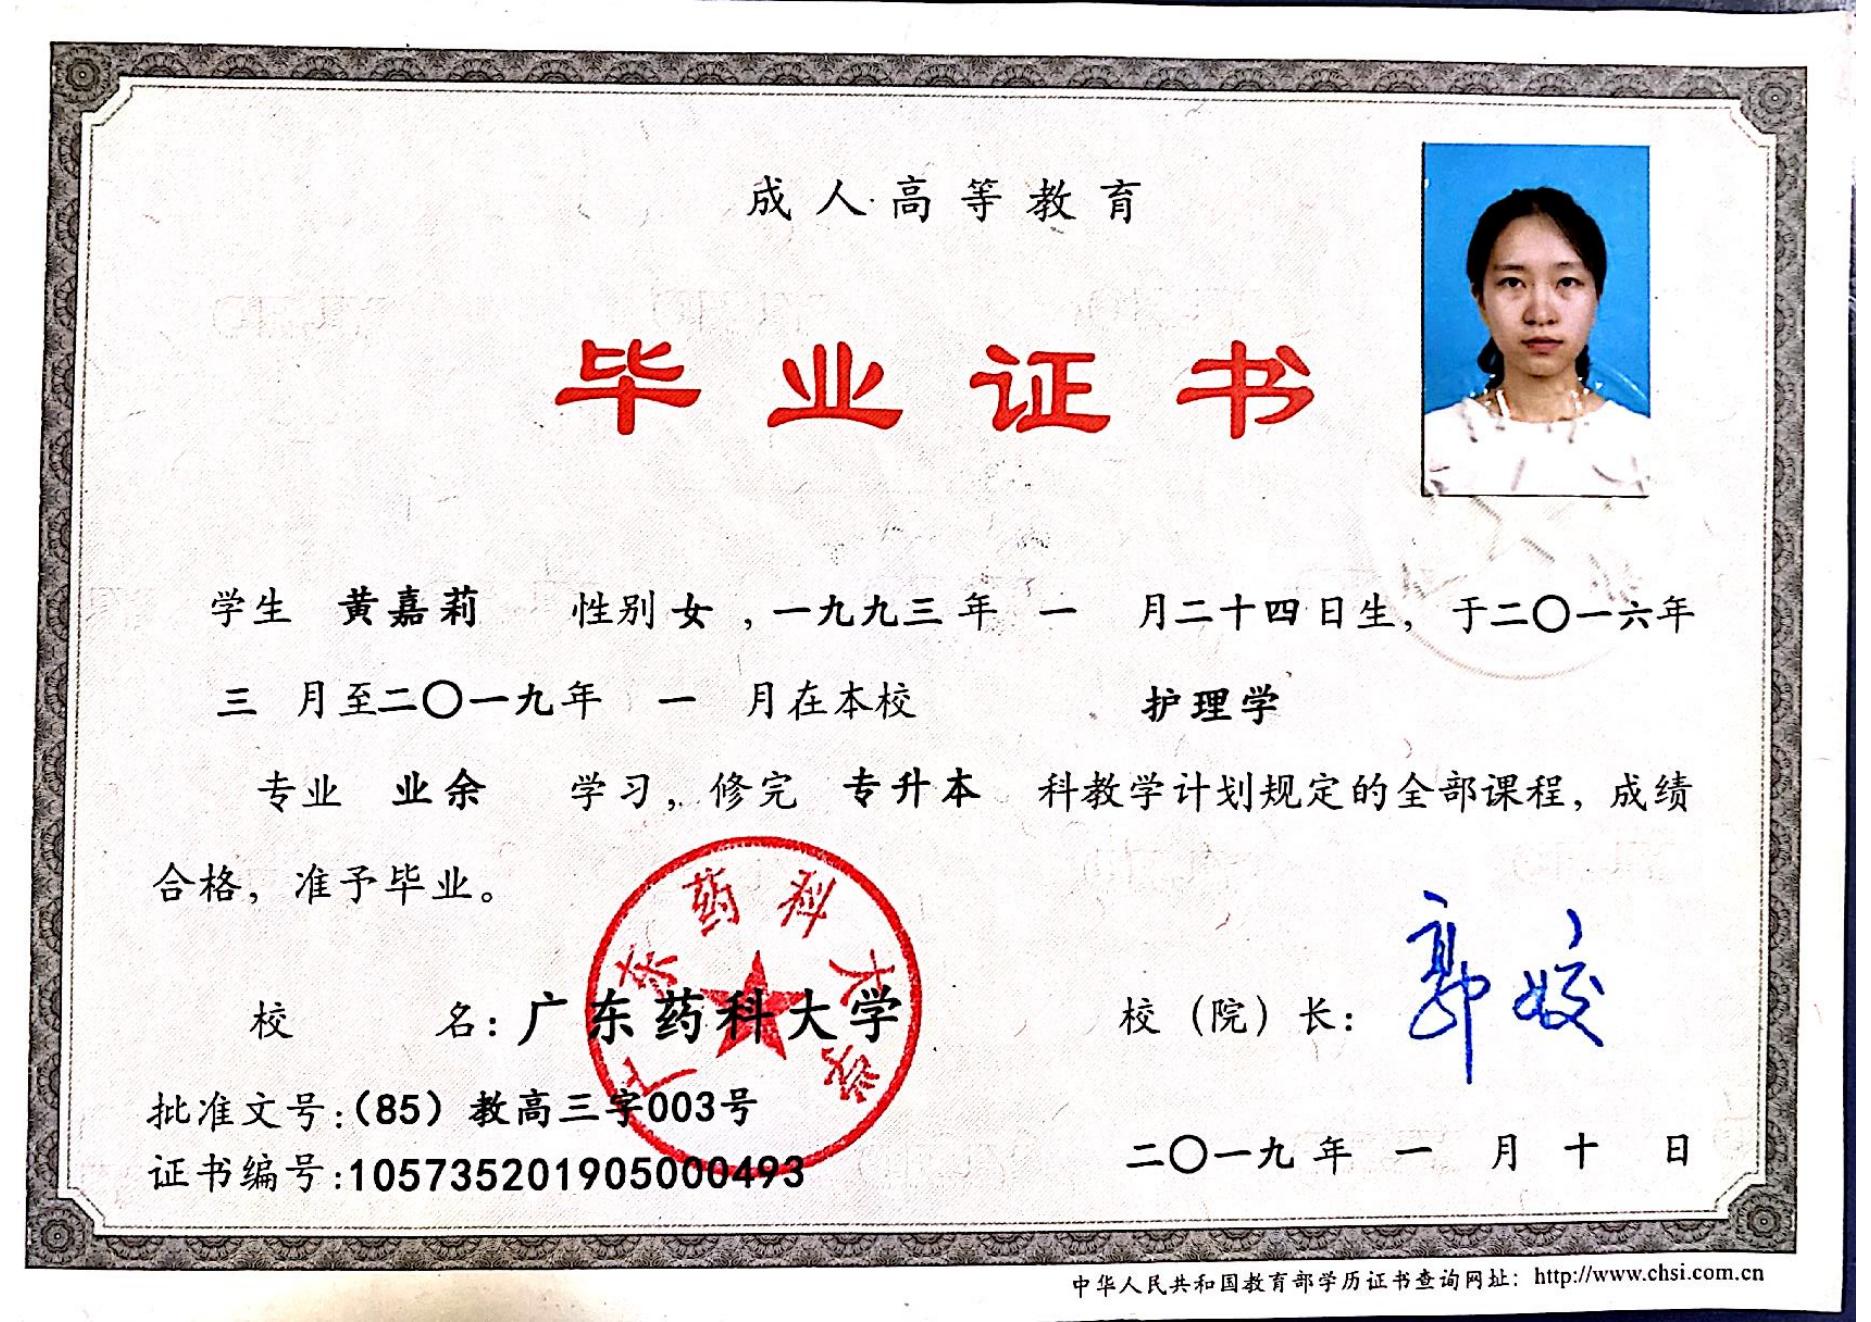 成人高等教育
毕业证书
学生 黄嘉莉 性别 女 ,一九九三 年 一 月二十四日生, 于二〇一六年
三 月至二〇一九年 一 月在本校 护理学
专业 业余 学习, 修完 专升本 科教学计划规定的全部课程, 成绩
合格, 准予毕业。
校 名: 广东药科大学
校（院）长: 郭姣
广东药科大学
批准文号:（85）教高三字003号
证书编号:105735201905000493
二〇一九 年 一 月 十 日
中华人民共和国教育部学历证书查询网址: http://www.chsi.com.cn